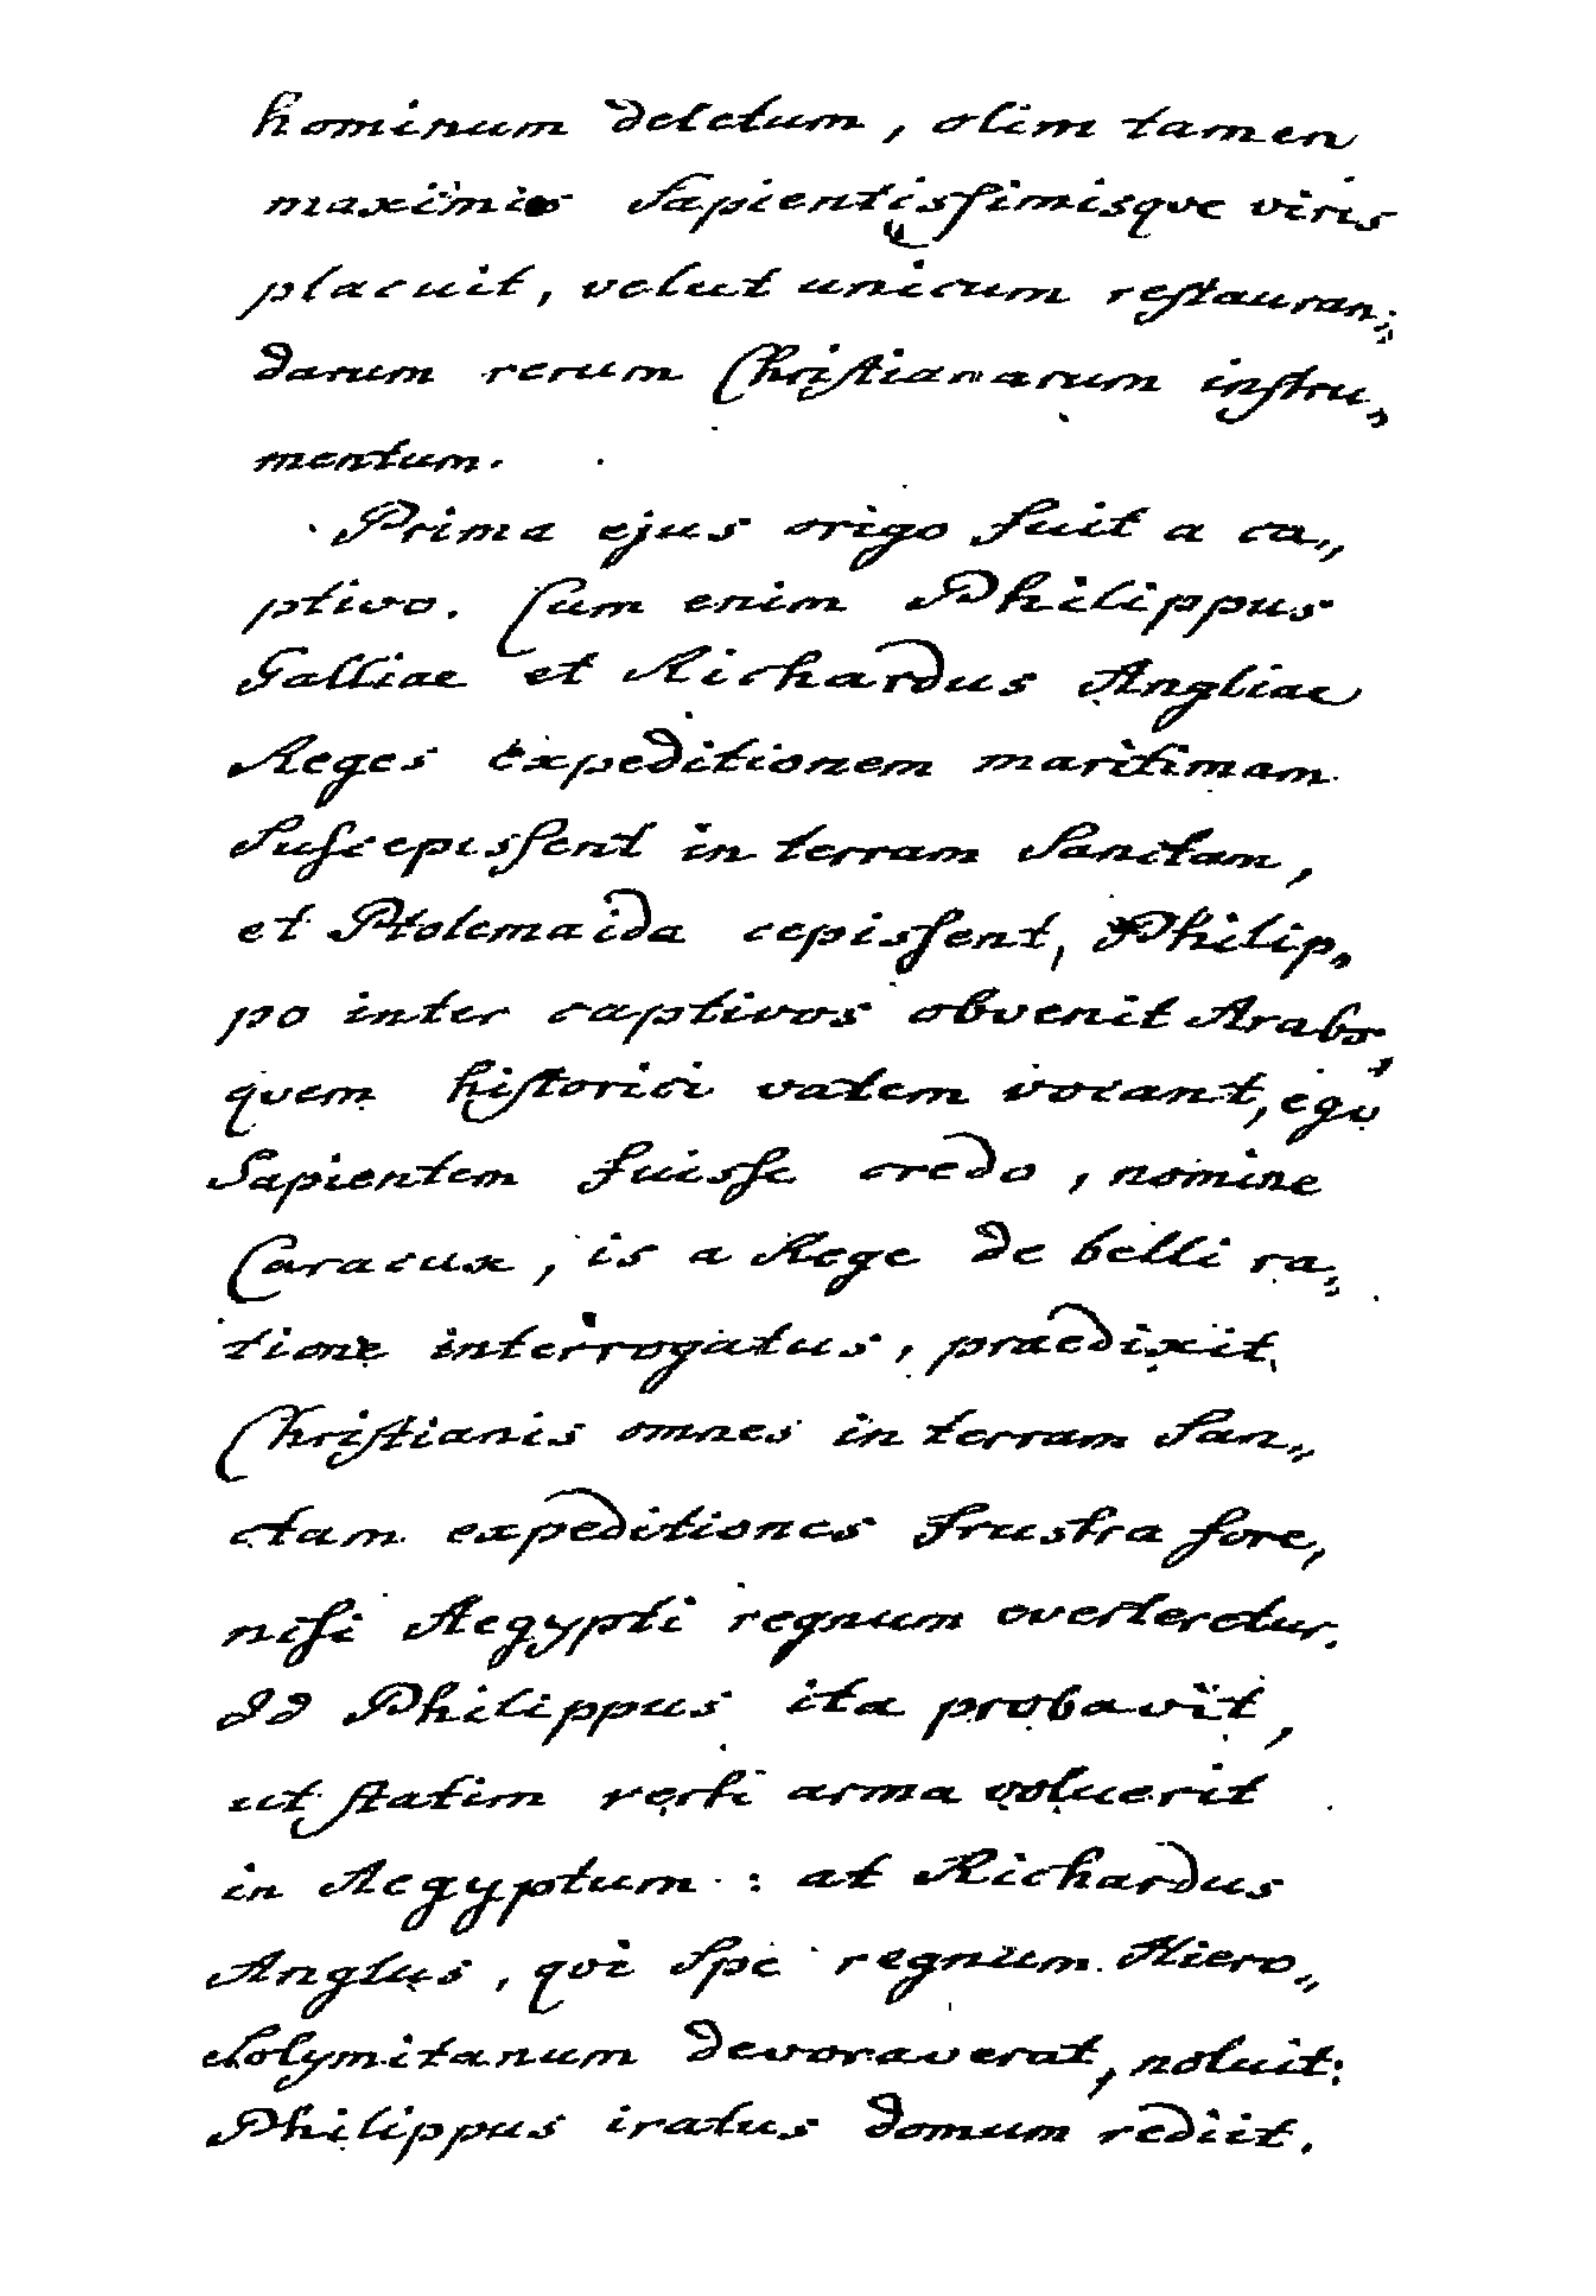 hominum deletum, olim tamen
maximis sapientissimisque viris
placuit, velut unicum restauran„
darum rerum Christianarum instru„
mentum.
Prima ejus origo fuit a ca„
ptivo. Cum enim Philippus
Galliae et Richardus Angliae
Reges expeditionem maritimam
suscepissent in terram Sanctam,
et Ptolemaida cepissent, Philip„
po inter captivos obvenit Arabs,
quem historici vatem vocant, ego
Sapientem fuisse credo, nomine
Caracux, is a Rege de belli ra„
tione interrogatus, praedixit
Christianis omnes in terram San„
ctam expeditiones frustra fore,
nisi Aegypti regnum everteretur.
Id Philippus ita probavit,
ut statim verti arma voluerit
in Aegyptum: at Richardus
Anglus, qui spe regnum Hiero„
solymitanum devoraverat, noluit:
Philippus iratus domum rediit.